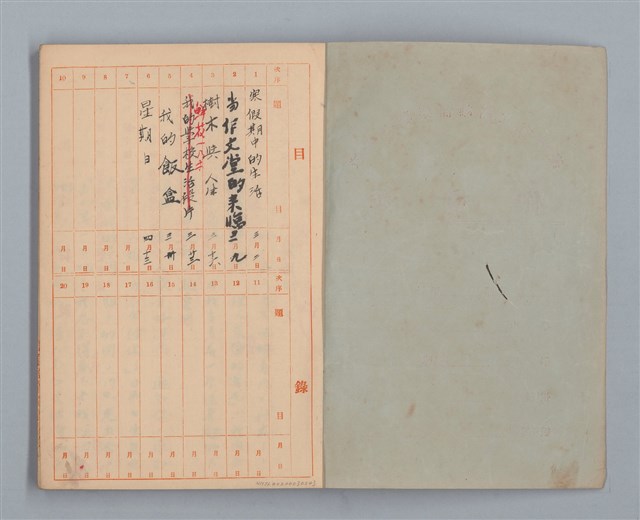 目錄
次序
題目
月日
1
寒假期中的生活
2
当作文堂的来臨
二 九
3
樹木與人体
4
我的學校生活段片
5
我的飯盒
三 卅
6
星期日
四 十三
7
8
9
10
次序
題目
月日
11
12
13
14
15
16
17
18
19
20